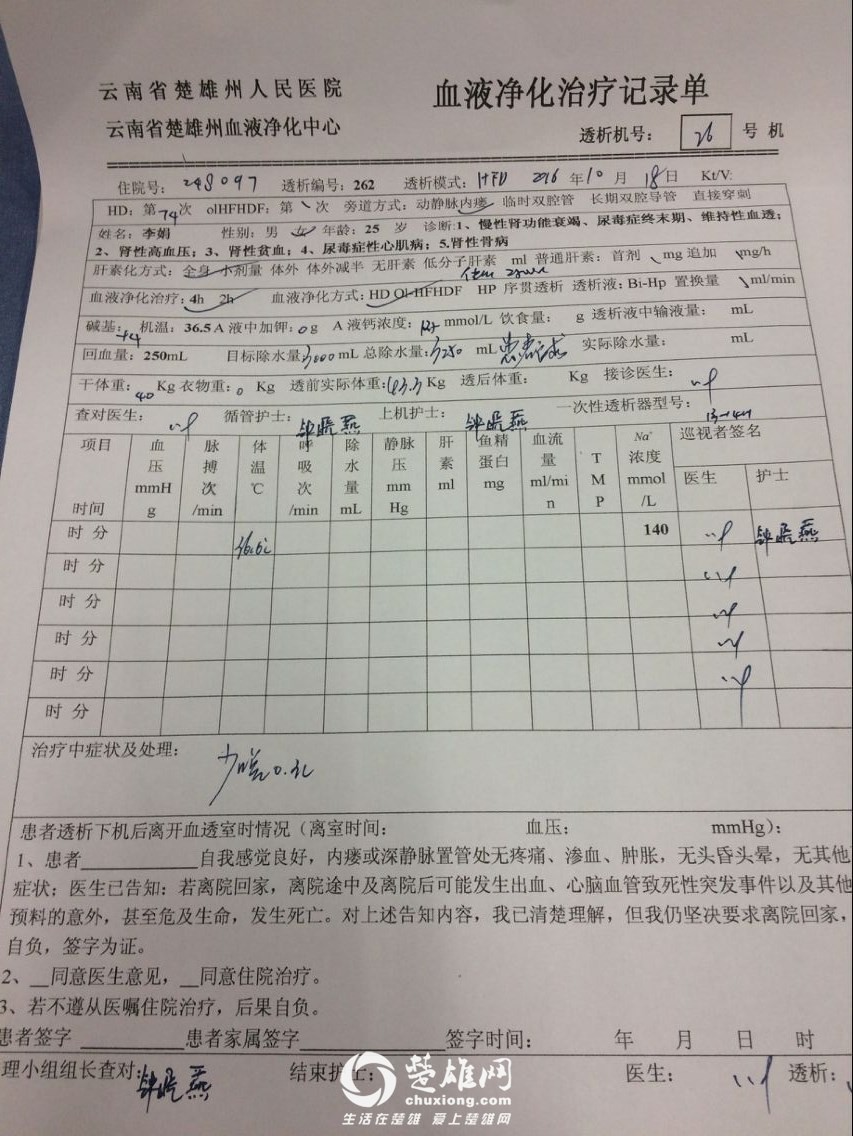 云南省楚雄州人民医院
血液净化治疗记录单
云南省楚雄州血液净化中心
透析机号: 26 号机
住院号: 248097 透析编号: 262 透析模式: HFD 年10月18日 Kt/V:
HD: 第74次 olHFHDF: 第 次 旁道方式: 动静脉内瘘 临时双腔管 长期双腔导管 直接穿刺
姓名: 李娟 性别: 男 女 年龄: 25 岁 诊断: 1、慢性肾功能衰竭、尿毒症终末期、维持性血透;
2、肾性高血压; 3、肾性贫血; 4、尿毒症性心肌病; 5.肾性骨病
肝素化方式: 全身 小剂量 体外 体外减半 无肝素 低分子肝素 ml 普通肝素: 首剂 mg 追加 mg/h
血液净化治疗: 4h 2h 血液净化方式: HD Ol-HFHDF HP 序贯透析 透析液: Bi-Hp 置换量 ml/min
碱基: +4 机温: 36.5 A 液中加钾: 0 g A 液钙浓度: mmol/L 饮食量: g 透析液中输液量: mL
回血量: 250mL 目标除水量: 3000 mL 总除水量: 3250 mL 患者要求 实际除水量: mL
干体重: 40 Kg 衣物重: 0 Kg 透前实际体重: 43.3 Kg 透后体重: Kg 接诊医生:
查对医生: 循管护士: 钟晓燕 上机护士: 钟晓燕 一次性透析器型号:
项目 时间 血压 mmHg 脉搏 次/min 体温 ℃ 呼吸 次/min 除水量 mL 静脉压 mm Hg 肝素 ml 鱼精蛋白 mg 血流量 ml/min TMP Na+ 浓度 mmol/L 巡视者签名 医生 护士
时 分 36.6℃ 140 钟晓燕
时 分
时 分
时 分
时 分
时 分
治疗中症状及处理:
患者透析下机后离开血透室时情况(离室时间: 血压: mmHg):
1、患者 自我感觉良好,内瘘或深静脉置管处无疼痛、渗血、肿胀,无头昏头晕,无其他
症状; 医生已告知: 若离院回家,离院途中及离院后可能发生出血、心脑血管致死性突发事件以及其他
预料的意外,甚至危及生命,发生死亡。对上述告知内容,我已清楚理解,但我仍坚决要求离院回家,
自负,签字为证。
2、__同意医生意见,__同意住院治疗。
3、若不遵从医嘱住院治疗,后果自负。
患者签字 患者家属签字 签字时间: 年 月 日 时
理小组组长查对: 钟晓燕 结束护士: 医生: 透析:
楚雄网
chuxiong.com
生活在楚雄 爱上楚雄网